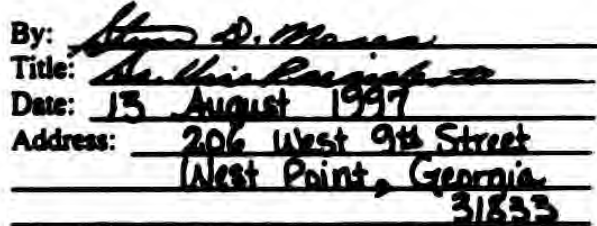 By: D.
Title: Sr. Vice President
Date: 13 August 1997
Address: 206 West 9th Street
West Point, Georgia
31833